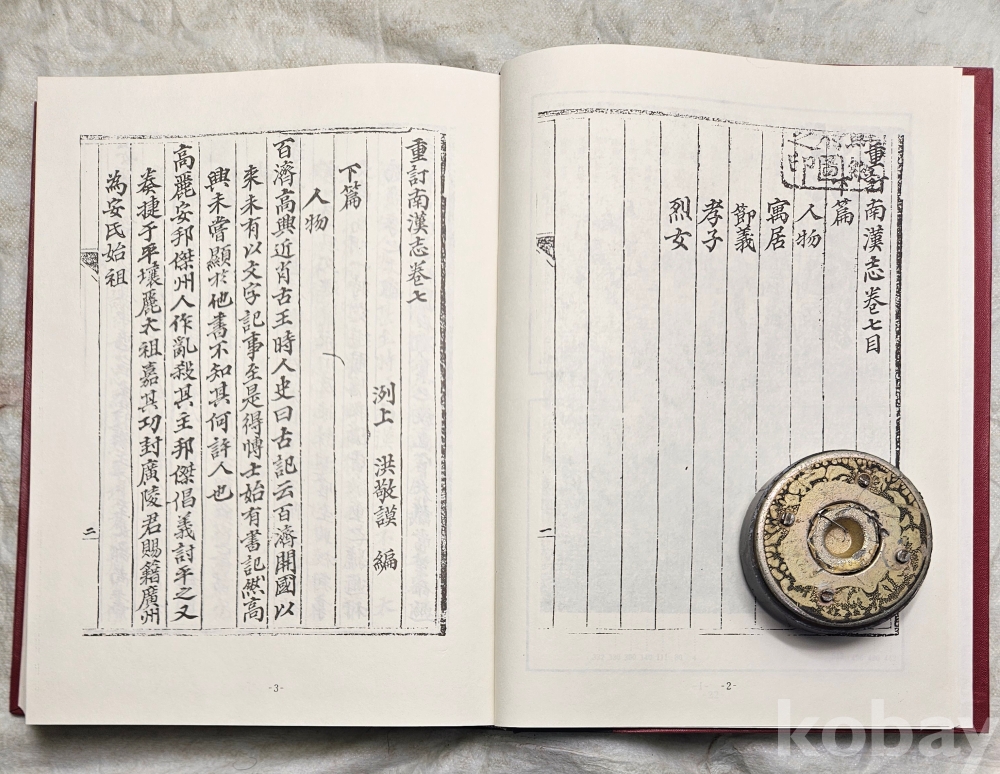 重訂南漢志卷七目
下篇
人物
寓居
節義
孝子
烈女
二
-2-
重訂南漢志卷七
洌上 洪敬謨 編
下篇
人物
百濟高興近肖古王時人史曰古記云百濟開國以
來未有以文字記事至是得博士始有書記然高
興未嘗顯於他書不知其何許人也
高麗安邦傑州人作亂殺其主邦傑倡義討平之又
奏捷于平壤麗太祖嘉其功封廣陵君賜籍廣州
為安氏始祖
二
-3-
kobay